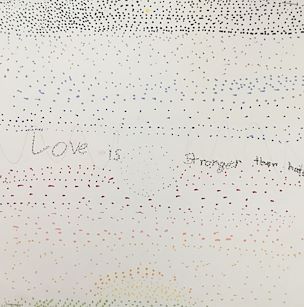 Love is Stronger than hate